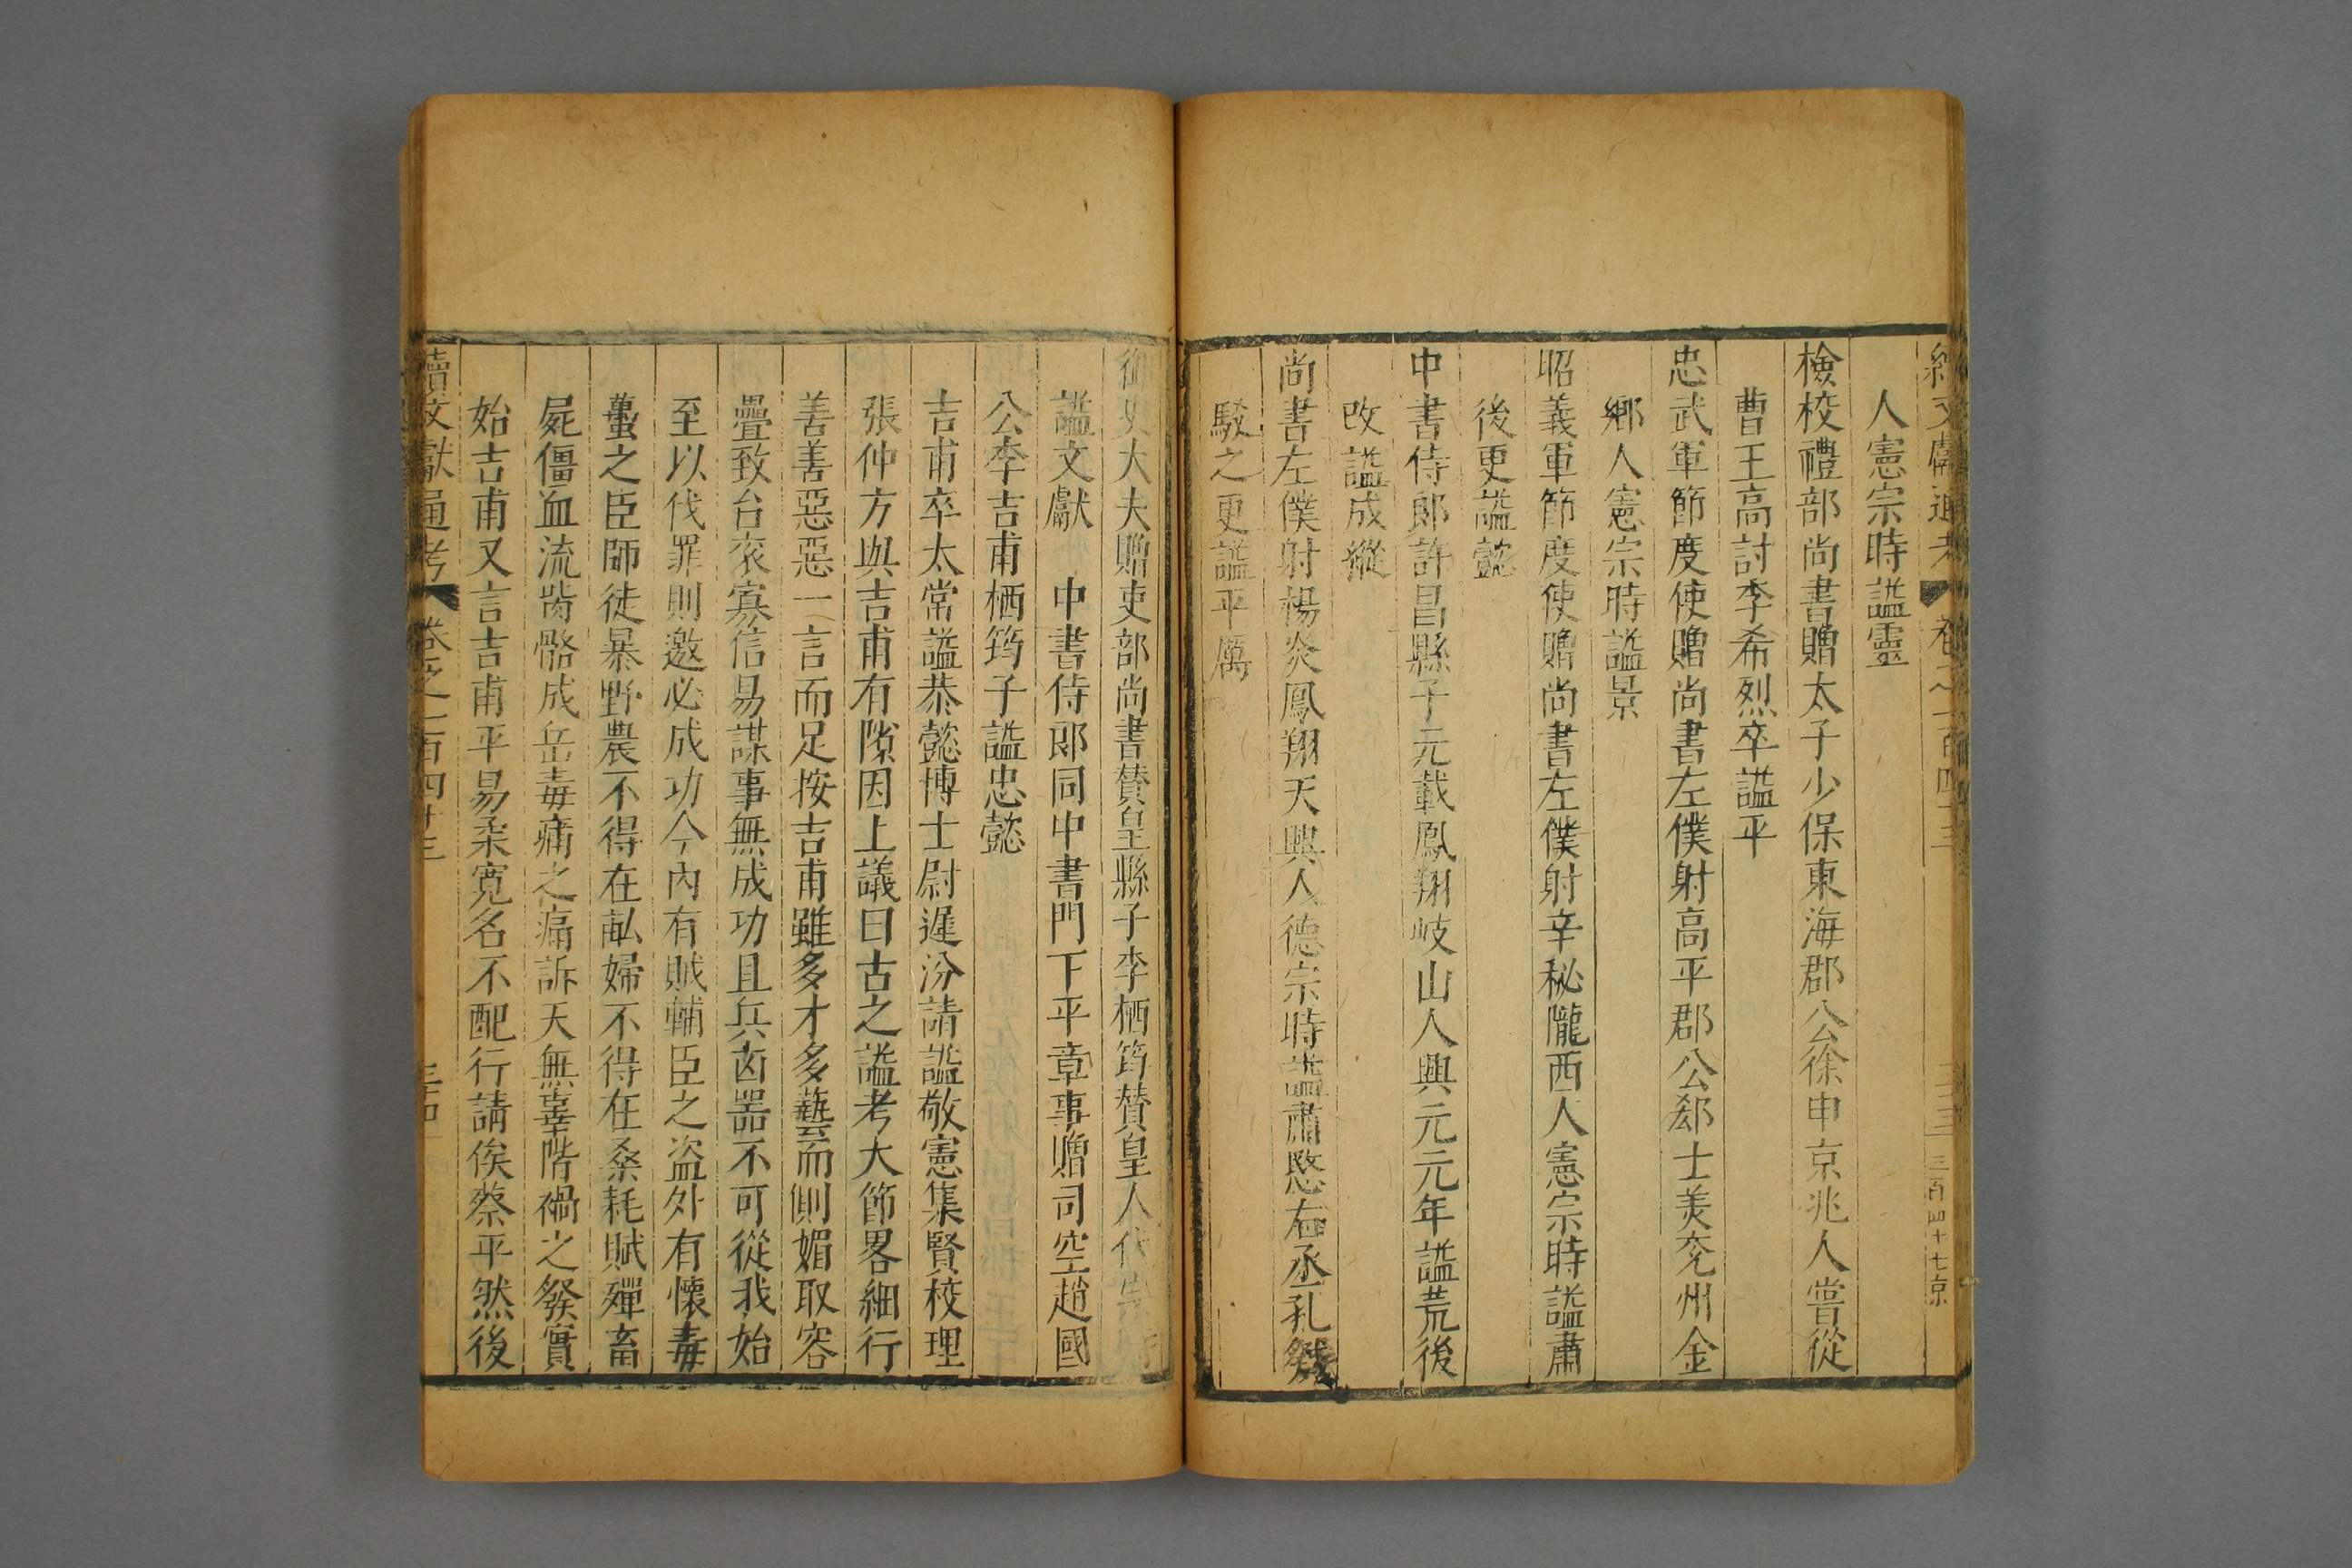 續文獻通考 卷之一百四十三 三十三 三百四十七京
人憲宗時謚靈
檢校禮部尚書贈太子少保東海郡公徐申京兆人嘗從
曹王高討李希烈卒謚平
忠武軍節度使贈尚書左僕射高平郡公郄士美兖州金
鄉人憲宗時謚景
昭義軍節度使贈尚書左僕射辛秘隴西人憲宗時謚肅
後更謚懿
中書侍郎許昌縣子元載鳳翔岐山人興元元年謚荒後
改謚成縱
尚書左僕射楊炎鳳翔天興人德宗時謚肅愍右丞孔
駁之更謚平厲
御史大夫贈吏部尚書賛皇縣子李栖筠賛皇人代
謚文獻 中書侍郎同中書門下平章事贈司空趙國
公李吉甫栖筠子謚忠懿
吉甫卒太常謚恭懿博士尉遲汾請謚敬憲集賢校理
張仲方與吉甫有隙因上議曰古之謚考大節畧細行
善善惡惡一言而足按吉甫雖多才多藝而側媚取容
疊致台衮寡信易謀事無成功且兵凶器不可從我始
至以伐罪則邀必成功今內有賊輔臣之盜外有懷毒
蠆之臣師徒暴野農不得在畝婦不得在桑耗賦殫畜
屍僵血流胔骼成岳毒痛之痛訴天無辜階禍之發實
始吉甫又言吉甫平易柔寬名不配行請俟蔡平然後
續文獻通考 卷之一百四十三 三十四